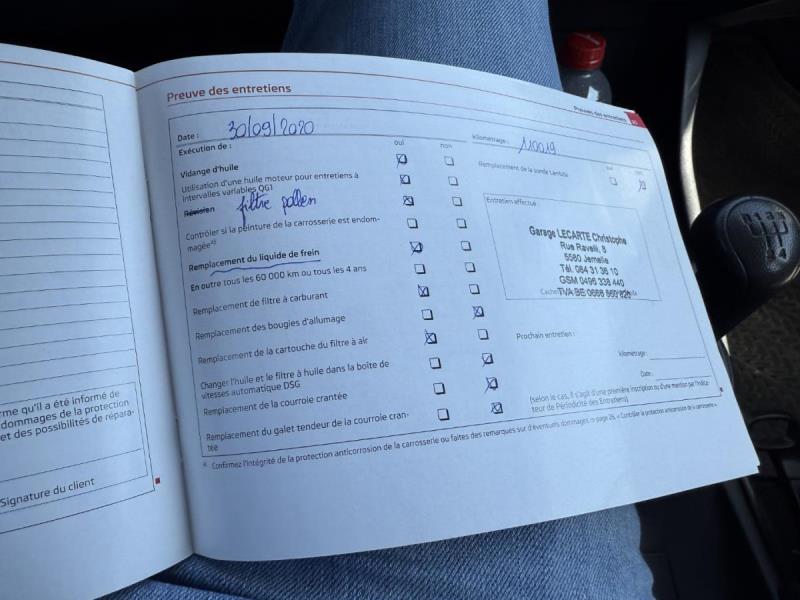 Preuve des entretiens
Preuves des entretiens
Date : 30/09/2020
kilométrage : 110019
Exécution de :
oui non
Vidange d'huile
Utilisation d'une huile moteur pour entretiens à
intervalles variables QG1
Révision filtre pollen
Contrôler si la peinture de la carrosserie est endom-
magée
Remplacement du liquide de frein
En outre tous les 60 000 km ou tous les 4 ans
Remplacement de filtre à carburant
Remplacement des bougies d'allumage
Remplacement de la cartouche du filtre à air
Changer l'huile et le filtre à huile dans la boîte de
vitesses automatique DSG
Remplacement de la courroie crantée
Remplacement du galet tendeur de la courroie cran-
tée
oui non
Remplacement de la sonde Lambda
Entretien effectué :
Garage LECARTE Christophe
Rue Ravelli, 8
5580 Jemelle
Tél. 084 31 36 10
GSM 0496 338 440
TVA BE
Cachet
Prochain entretien :
kilométrage :
Date :
(selon le cas, il s'agit d'une première inscription ou d'une mention par l'Indica-
teur de Périodicité des Entretiens)
Confirmez l'intégrité de la protection anticorrosion de la carrosserie ou faites des remarques sur d'éventuels dommages ⇒ page 25, « Contrôler la protection anticorrosion de la carrosserie ».
rme qu'il a été informé de
dommages de la protection
et des possibilités de répara-
Signature du client